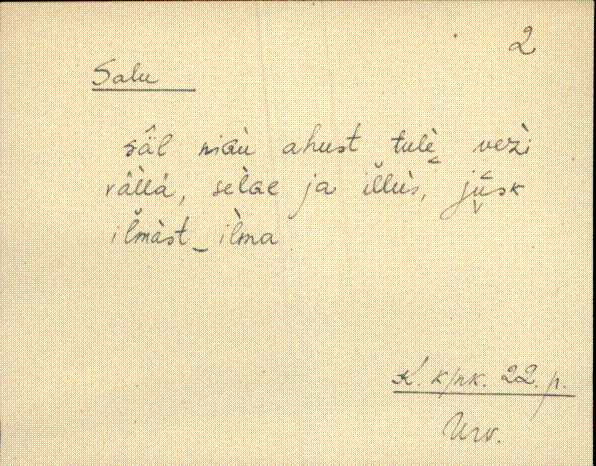 2
Salu
sâl niɢù ahust tulè vezì
vällä, selGe ja illùs, jusk
ilmàst‿ilma
K. k/nk. 22. p.
Urv.